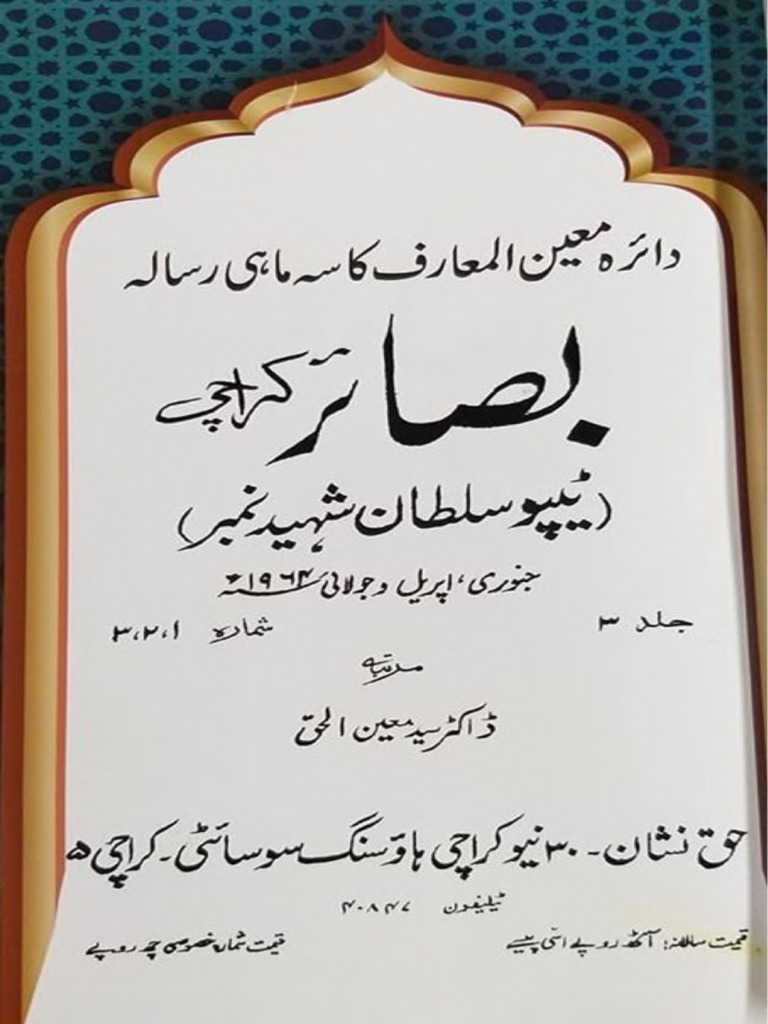 دائرہ معین المعارف کا سہ ماہی رسالہ
بصائر کراچی
(ٹیپو سلطان شہید نمبر)
جنوری، اپریل و جولائی ۱۹۶۴ء
جلد ۳ شمارہ ۳،۲،۱
مرتبہ
ڈاکٹر سید معین الحق
حق نشان۔ ۳۰ نیو کراچی ہاؤسنگ سوسائٹی۔ کراچی ۵
ٹیلیفون ۴۰۸۴۷
قیمت سالانہ: آٹھ روپے اسّی پیسے قیمت شمارہ خصوصی چھ روپے